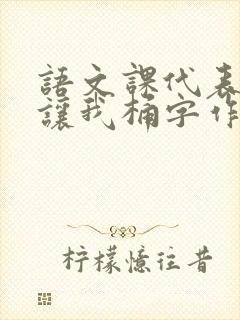 語文課代表
讓我桶字作
柠檬憶往昔